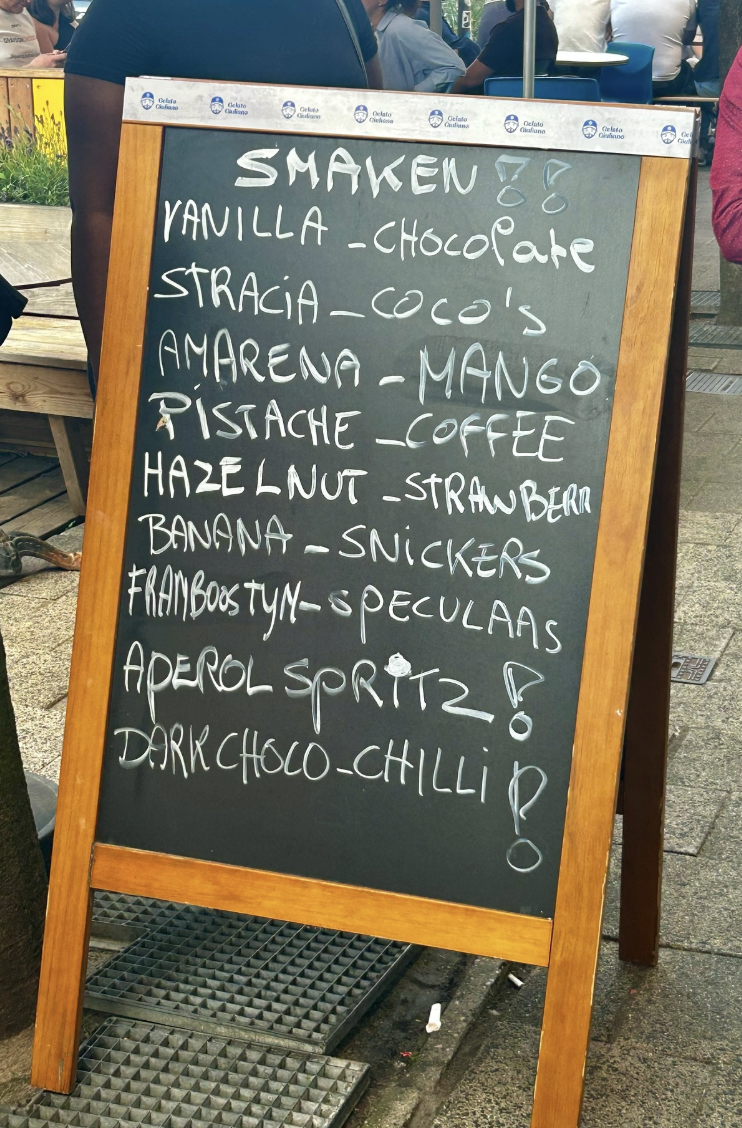 Gelato Giuliano Gelato Giuliano Gelato Giuliano Gelato Giuliano Gelato Giuliano Gelato Giuliano Gelato Giuliano Gelato
SMAKEN !!
VANILLA - CHOCOlate
STRACiA - COCO's
AMARENA - MANGO
PiSTACHE - COFFEE
HAZELNUT - STRAWBERR
BANANA - SNiCKERS
FRAMBOOSTYN - SPECULAAS
APEROL SPRITZ !
DARKCHOCO - CHILLi !